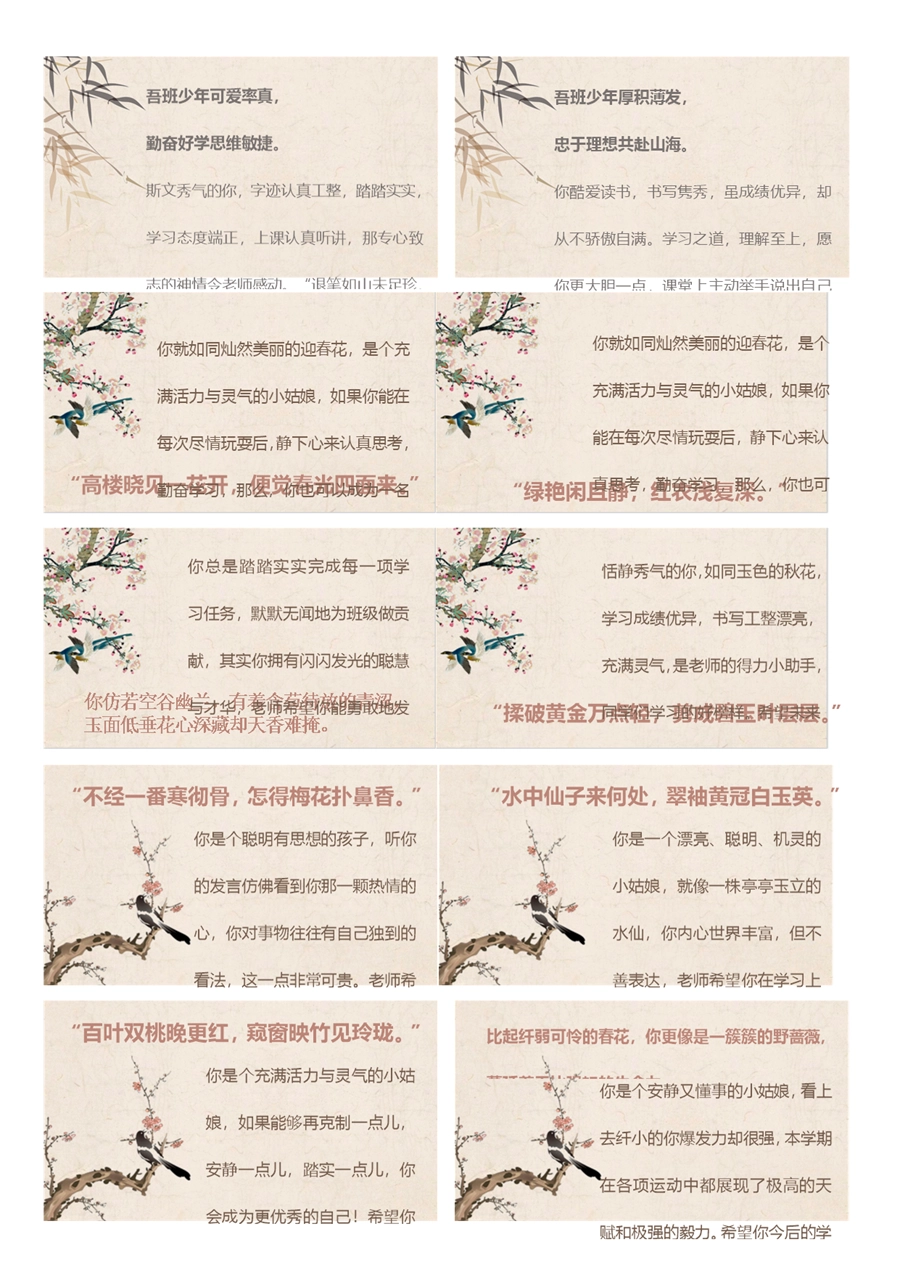 吾班少年可爱率真，
勤奋好学思维敏捷。
斯文秀气的你，字迹认真工整，踏踏实实，
学习态度端正，上课认真听讲，那专心致
志的神情令老师感动。“退笔如山未足珍，
吾班少年厚积薄发，
忠于理想共赴山海。
你酷爱读书，书写隽秀，虽成绩优异，却
从不骄傲自满。学习之道，理解至上，愿
你更大胆一点，课堂上主动举手说出自己
你就如同灿然美丽的迎春花，是个充
满活力与灵气的小姑娘，如果你能在
每次尽情玩耍后，静下心来认真思考，
勤奋学习，那么，你也可以成为一名
“高楼晓见一花开，便觉春光四面来。”
你就如同灿然美丽的迎春花，是个
充满活力与灵气的小姑娘，如果你
能在每次尽情玩耍后，静下心来认
真思考，勤奋学习，那么，你也可
“绿艳闲且静，红衣浅复深。”
你总是踏踏实实完成每一项学
习任务，默默无闻地为班级做贡
献，其实你拥有闪闪发光的聪慧
与才华，老师希望你能勇敢地发
你仿若空谷幽兰，有着含苞待放的青涩，
玉面低垂花心深藏却天香难掩。
恬静秀气的你，如同玉色的秋花，
学习成绩优异，书写工整漂亮，
充满灵气，是老师的得力小助手，
同学们学习的好榜样。希望未来
“揉破黄金万点轻，剪成碧玉叶层层。”
“不经一番寒彻骨，怎得梅花扑鼻香。”
你是个聪明有思想的孩子，听你
的发言仿佛看到你那一颗热情的
心，你对事物往往有自己独到的
看法，这一点非常可贵。老师希
“水中仙子来何处，翠袖黄冠白玉英。”
你是一个漂亮、聪明、机灵的
小姑娘，就像一株亭亭玉立的
水仙，你内心世界丰富，但不
善表达，老师希望你在学习上
“百叶双桃晚更红，窥窗映竹见玲珑。”
你是个充满活力与灵气的小姑
娘，如果能够再克制一点儿，
安静一点儿，踏实一点儿，你
会成为更优秀的自己！希望你
比起纤弱可怜的春花，你更像是一簇簇的野蔷薇，
你是个安静又懂事的小姑娘，看上
去纤小的你爆发力却很强，本学期
在各项运动中都展现了极高的天
赋和极强的毅力。希望你今后的学